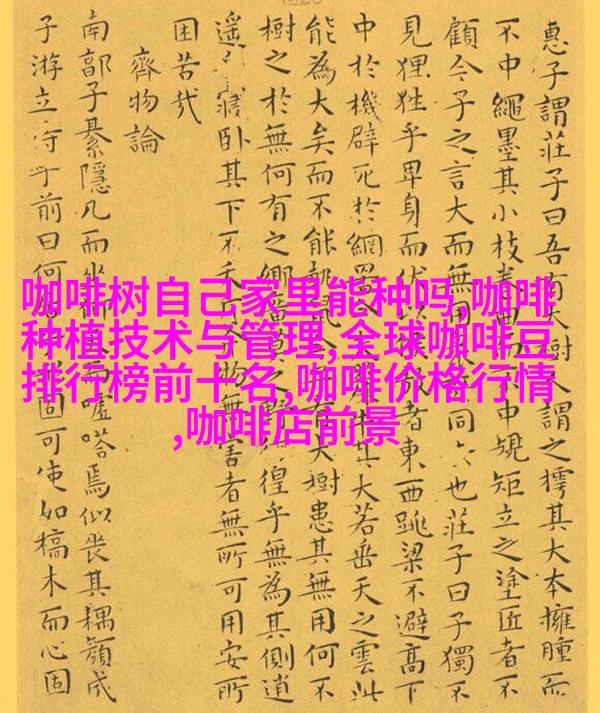 惠子謂莊子曰吾有大樹人謂之樗其大本擁腫而
不中繩墨其小枝卷曲而不中規矩立之塗匠者不
顧今子之言大而無用同也莊子曰子獨不
見狸狌乎卑身而伏以候者東西跳梁不避高下
中於機辟死於網罟其大若垂天之雲此
能為大矣而不能執鼠今有大樹患其無用何不
樹之於無何有之鄉廣莫之野徨乎無為其側逍
遙寢卧其下不夭斤物無害者無所可用安所
困苦哉
齊物論
南郭子綦隱几而坐仰焉噓嗒焉似喪其耦顏成
子游立侍乎前曰何固可使如槁木而心固
咖啡树自己家里能种吗,咖啡
种植技术与管理,全球咖啡豆
排行榜前十名,咖啡价格行情
,咖啡店前景